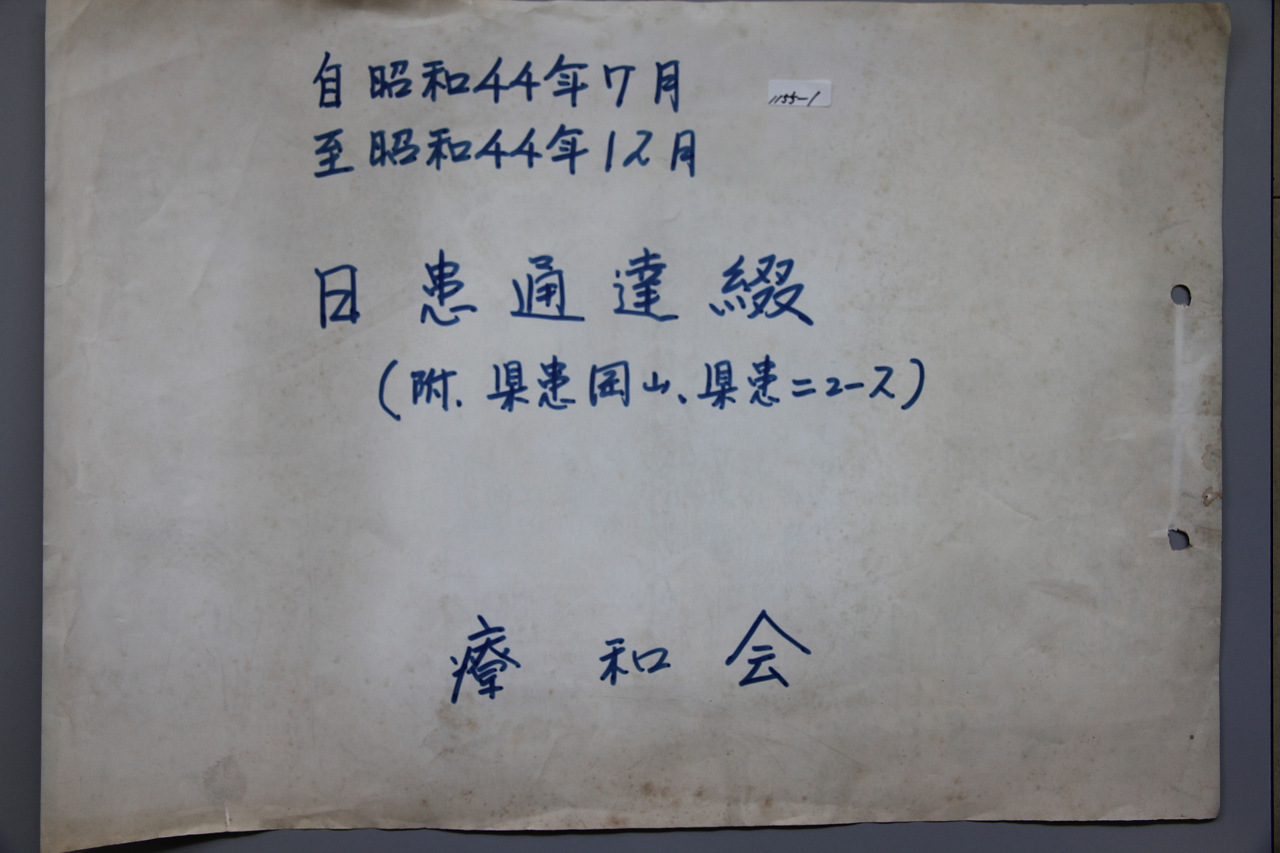 自昭和44年7月
1155-1
至昭和44年12月
日患通達綴
(附、県患岡山、県患ニュース)
療和会